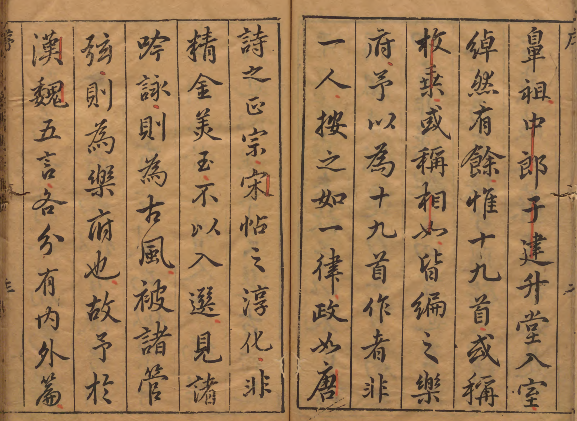 鼻祖中郎子建升堂入室
綽然有餘惟十九首或稱
枚乗或稱相如皆編之樂
府予以為十九首作者非
一人按之如一律政如唐
詩之正宗宋帖之淳化非
精金美玉不以入選見諸
吟詠則為古風被諸管
弦則為樂府也故予於
漢魏五言各分有内外篇